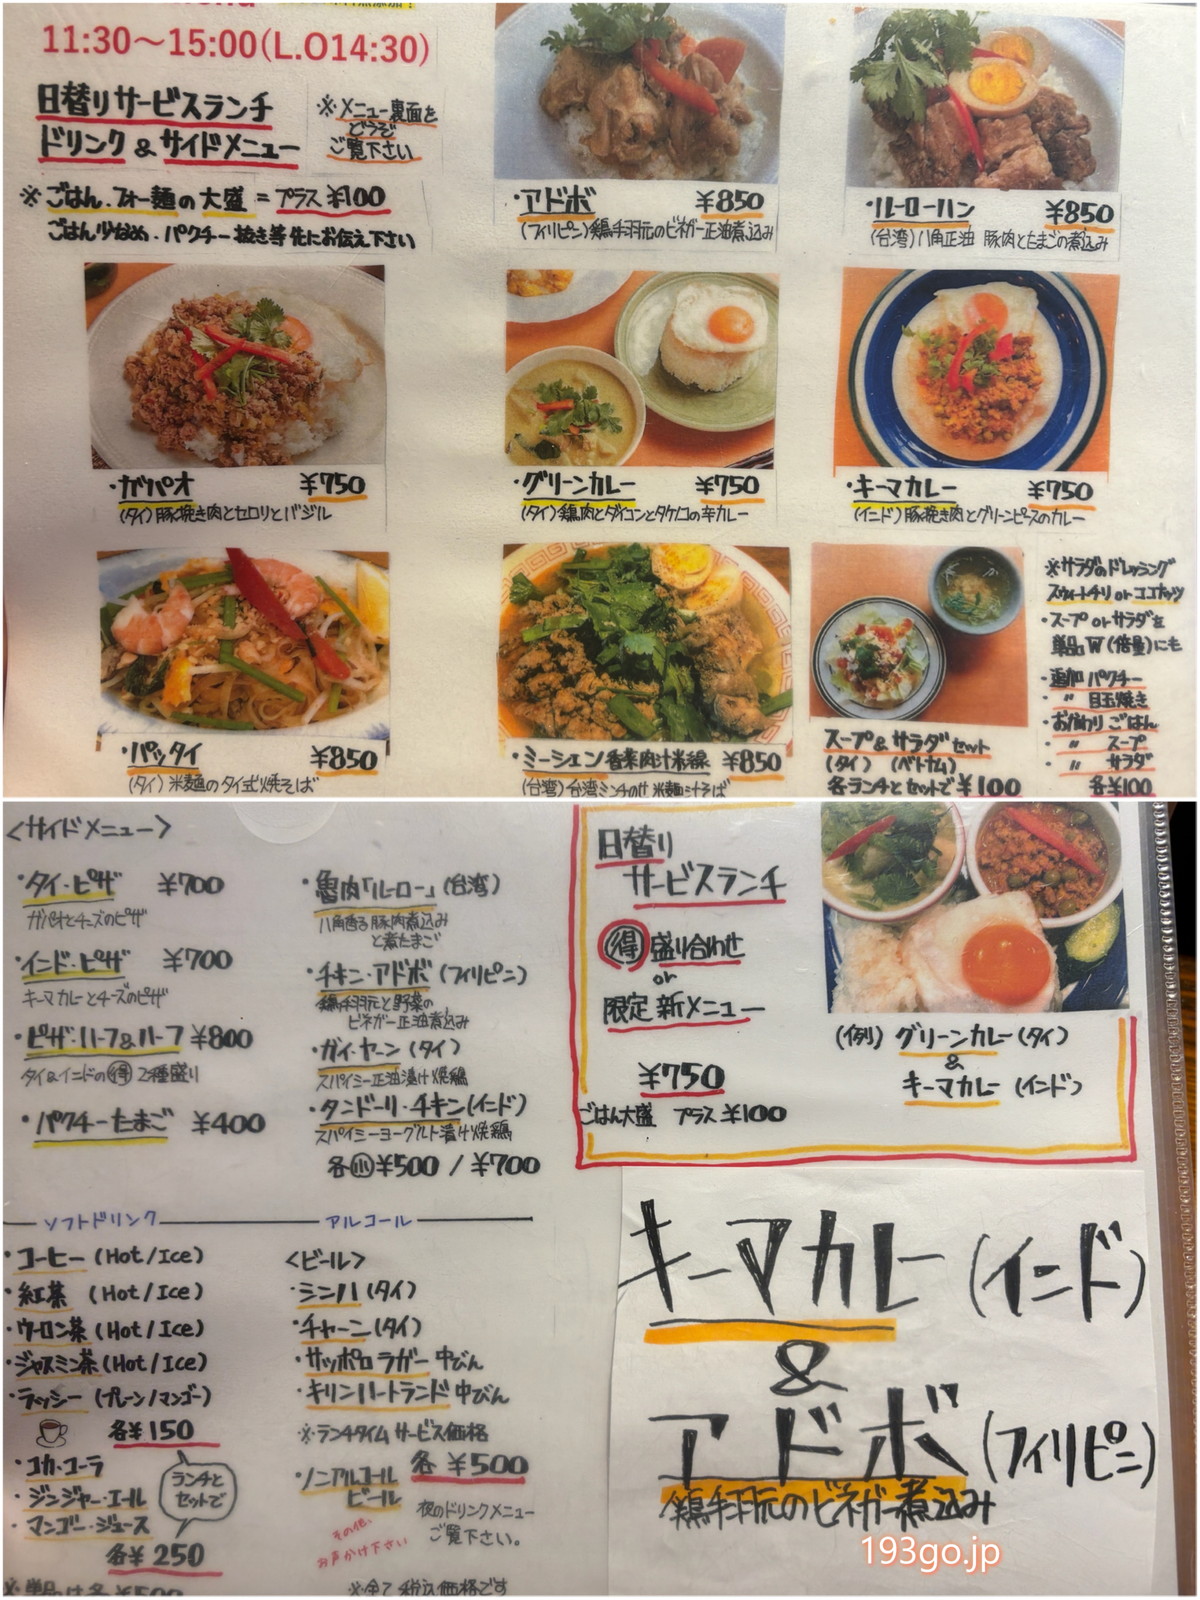 11:30〜15:00(L.O14:30)
日替りサービスランチ
ドリンク & サイドメニュー
※メニュー裏面を
どうぞ
ご覧下さい
※ごはん.フォー麺の大盛 = プラス ¥100
ごはん少なめ.パクチー抜き等 先にお伝え下さい
・アドボ ¥850
(フィリピン)鶏手羽元のビネガー正油煮込み
・ルーローハン ¥850
(台湾)八角正油 豚肉とたまごの煮込み
・ガパオ ¥750
(タイ)豚挽き肉とセロリとバジル
・グリーンカレー ¥750
(タイ)鶏肉とダイコンとタケノコの辛カレー
・キーマカレー ¥750
(インド)豚挽き肉とグリーンピースのカレー
・パッタイ ¥850
(タイ)米麺のタイ式焼そば
・ミーシェン香菜肉汁米線 ¥850
(台湾)台湾ミンチのせ 米麺汁そば
スープ&サラダセット
(タイ) (ベトナム)
各ランチとセットで¥100
※サラダのドレッシング
スウィートチリorココナッツ
・スープorサラダを
単品W(倍量)にも
・追加 パクチー
・ 〃 目玉焼き
・おかわり ごはん
・ 〃 スープ
・ 〃 サラダ
各¥100
<サイドメニュー>
・タイ・ピザ ¥700
ガパオとチーズのピザ
・インド・ピザ ¥700
キーマカレーとチーズのピザ
・ピザ・ハーフ&ハーフ ¥800
タイ&インドの得2種盛り
・パクチーたまご ¥400
・魯肉「ルーロー」(台湾)
八角香る豚肉煮込み
と煮たまご
・チキン・アドボ (フィリピン)
鶏手羽元と野菜の
ビネガー正油煮込み
・ガイ・ヤーン (タイ)
スパイシー正油漬け焼鶏
・タンドーリ・チキン(インド)
スパイシーヨーグルト漬け焼鶏
各小¥500 / ¥700
日替り
サービスランチ
得 盛り合わせ
or
限定新メニュー
¥750
ごはん大盛 プラス ¥100
(例) グリーンカレー (タイ)
&
キーマカレー (インド)
ソフトドリンク
・コーヒー (Hot/Ice)
・紅茶 (Hot/Ice)
・ウーロン茶 (Hot/Ice)
・ジャスミン茶 (Hot/Ice)
・ラッシー (プレーン/マンゴー)
各¥150
・コカ・コーラ
・ジンジャー・エール
・マンゴー・ジュース
各¥250
ランチと
セットで
※単品は各¥500
アルコール
<ビール>
・シンハ (タイ)
・チャーン (タイ)
・サッポロ ラガー 中びん
・キリンハートランド 中びん
※ランチタイム サービス価格
各¥500
・ノンアルコール
ビール
夜のドリンクメニュー
ご覧下さい。
その他、
お声かけ下さい
※全て税込価格です
キーマカレー (インド)
&
アドボ (フィリピン)
鶏手羽元のビネガー煮込み
193go.jp